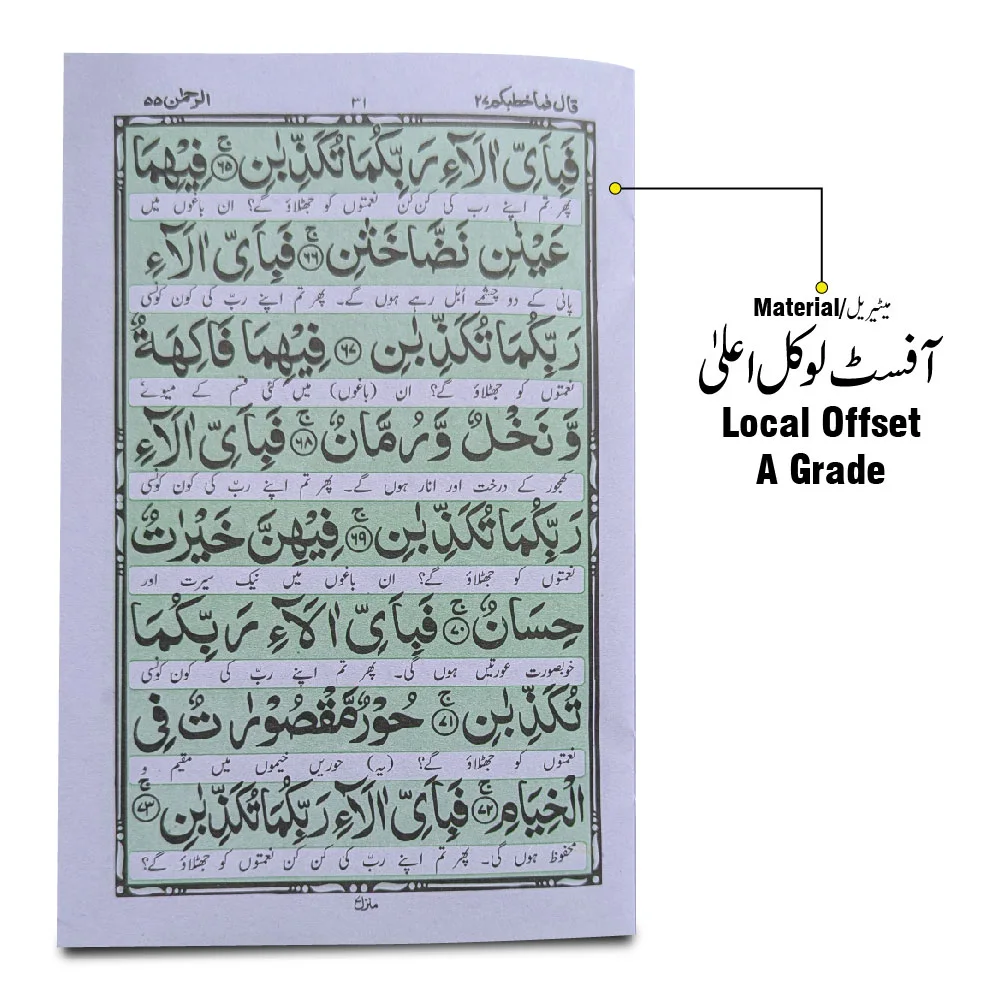 قال فما خطبکم ۲۷
۳۱
الرحمٰن ۵۵
فَبِاَیِّ اٰلَآءِ رَبِّکُمَا تُکَذِّبٰنِ ۚ﴿۶۵﴾ فِیْہِمَا
پھر تم اپنے رب کی کن کن نعمتوں کو جھٹلاؤ گے؟ ان باغوں میں
عَیْنٰنِ نَضَّاخَتٰنِ ۚ﴿۶۶﴾ فَبِاَیِّ اٰلَآءِ
پانی کے دو چشمے اُبل رہے ہوں گے۔ پھر تم اپنے ربّ کی کون کونسی
رَبِّکُمَا تُکَذِّبٰنِ ﴿۶۷﴾ فِیْہِمَا فَاکِہَۃٌ
نعمتوں کو جھٹلاؤ گے؟ ان (باغوں) میں کئی قسم کے میوے
وَّ نَخْلٌ وَّ رُمَّانٌ ۚ﴿۶۸﴾ فَبِاَیِّ اٰلَآءِ
کھجور کے درخت اور انار ہوں گے۔ پھر تم اپنے ربّ کی کون کونسی
رَبِّکُمَا تُکَذِّبٰنِ ۚ﴿۶۹﴾ فِیْہِنَّ خَیْرٰتٌ
نعمتوں کو جھٹلاؤ گے؟ ان باغوں میں نیک سیرت اور
حِسَانٌ ۚ﴿۷۰﴾ فَبِاَیِّ اٰلَآءِ رَبِّکُمَا
خوبصورت عورتیں ہوں گی۔ پھر تم اپنے ربّ کی کون کونسی
تُکَذِّبٰنِ ۚ﴿۷۱﴾ حُوْرٌ مَّقْصُوْرٰتٌ فِی
نعمتوں کو جھٹلاؤ گے؟ (یہ) حوریں خیموں میں مقیم و
الْخِیَامِ ۚ﴿۷۲﴾ فَبِاَیِّ اٰلَآءِ رَبِّکُمَا تُکَذِّبٰنِ ۚ﴿۷۳﴾
محفوظ ہوں گی۔ پھر تم اپنے ربّ کی کن کن نعمتوں کو جھٹلاؤ گے؟
Material/میٹیریل
آفسٹ لوکل اعلیٰ
Local Offset
A Grade